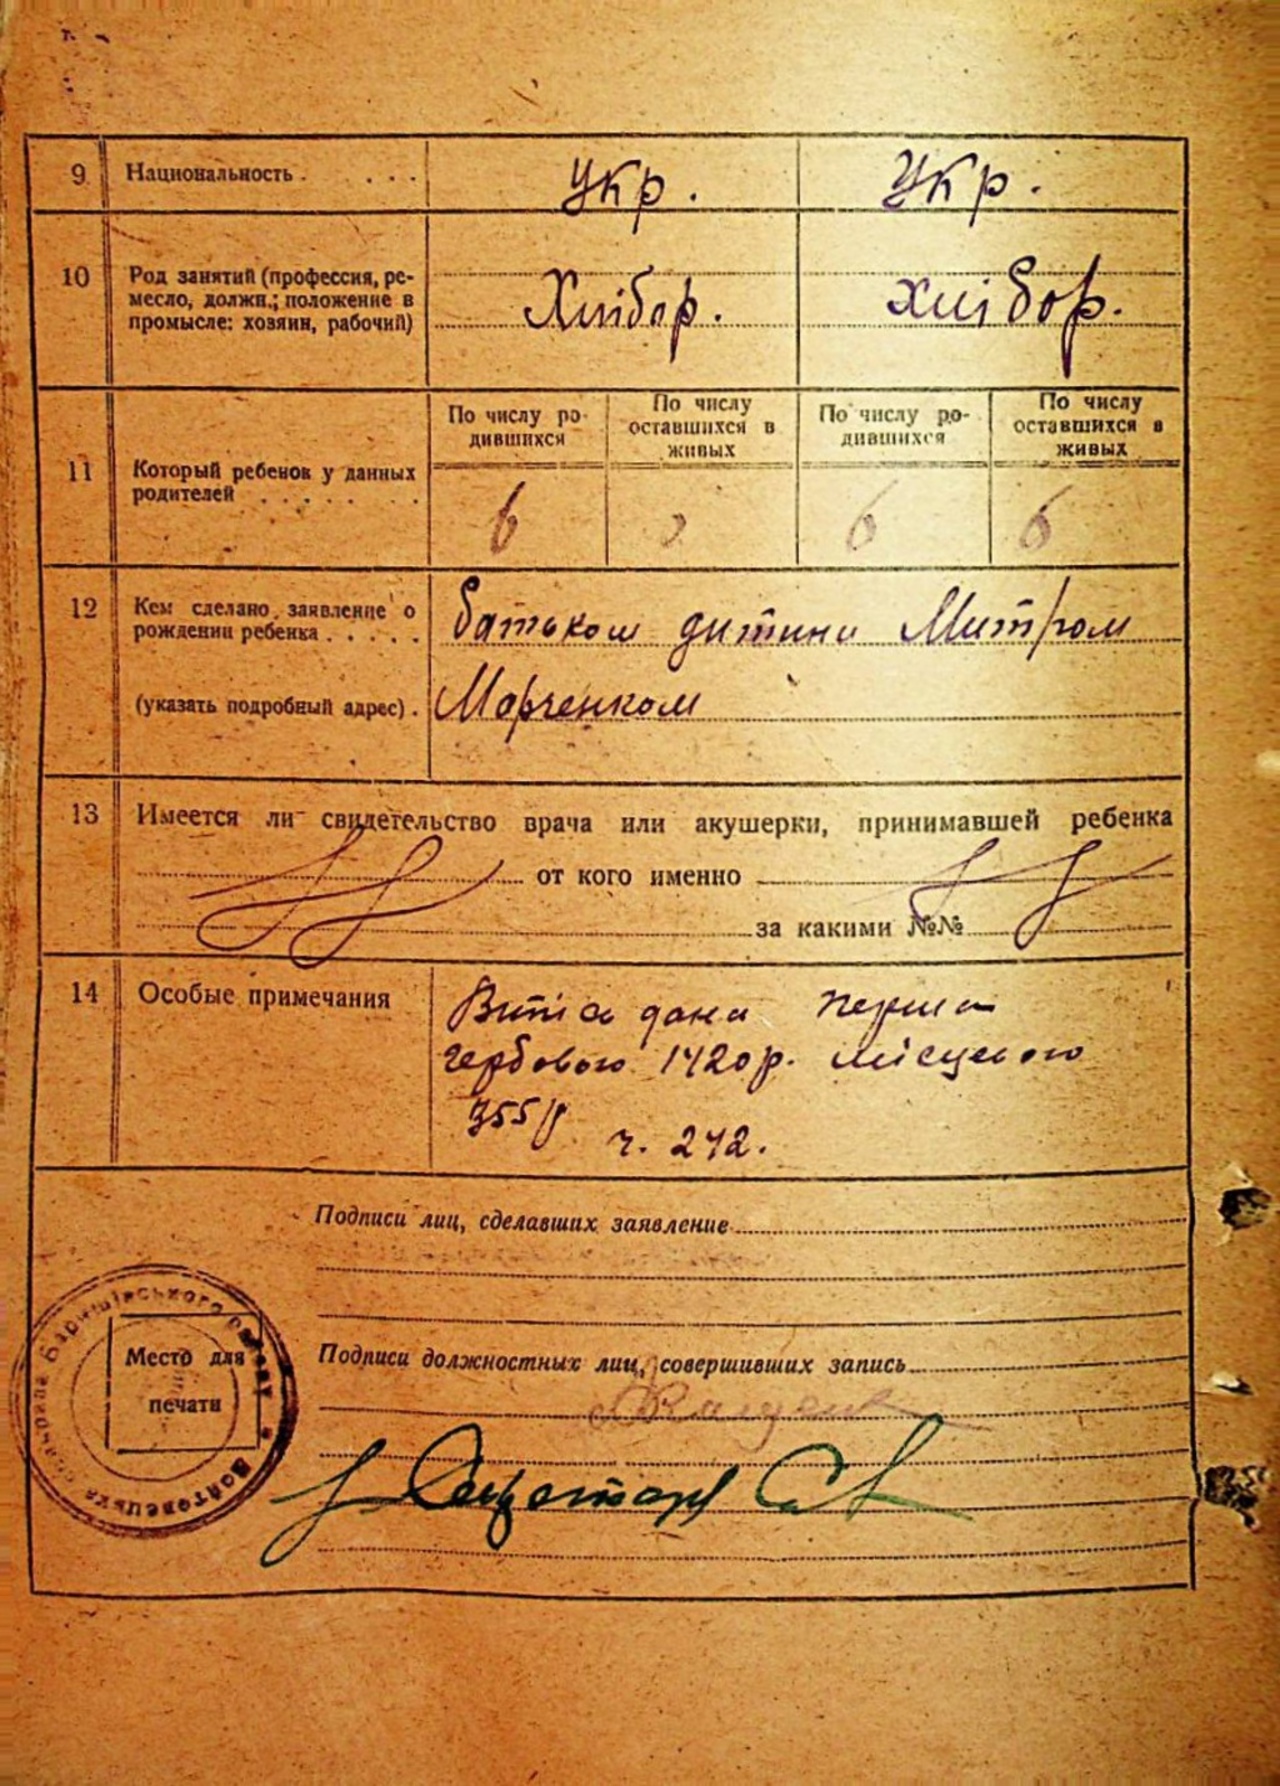 9 Национальность . . . . укр. Укр.
10 Род занятий (профессия, ре-
месло, должн.; положение в
промысле: хозяин, рабочий)
Хлібор. хлібор.
По числу ро-
дившихся
По числу
оставшихся в
живых
По числу ро-
дившихся
По числу
оставшихся в
живых
11 Который ребенок у данных
родителей . . . . . .
6 6 6
12 Кем сделано заявление о
рождении ребенка . . . . .
(указать подробный адрес) .
батьком дитини Митром
Марченком
13 Имеется ли свидетельство врача или акушерки, принимавшей ребенка
от кого именно
за какими №№
14 Особые примечания
дана перша
гербового 1420р. місцевого
355р
ч. 242.
Подписи лиц, сделавших заявление
Подписи должностных лиц, совершивших запись
Место для
печати
Баришівського
Войтовецька